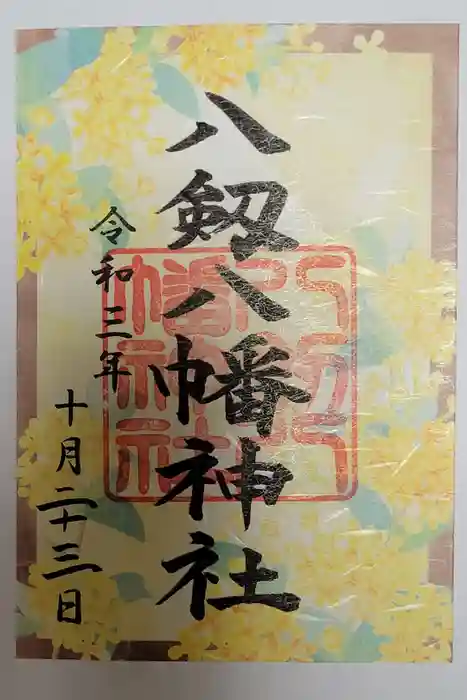 八剱八幡神社
令和三年
十月二十三日
八剱八幡神社